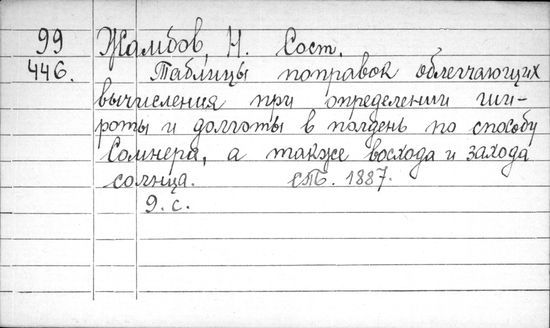 99 Жамбов, Н. Сост.
446. Таблицы поправок облегчающих
вычисления при определении ши-
роты и долготы в полдень по способу
Сомнера, а также восхода и захода
солнца. СПб. 1887.
9. с.